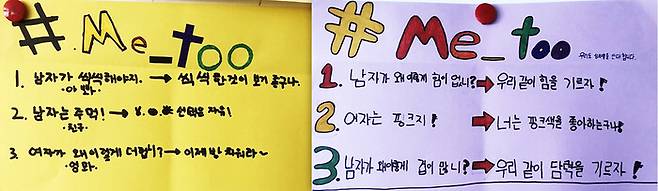 # Me_too
1. 남자가 씩씩해야지. → 씩씩한것이 보기 좋구나.
2. 남자는 주먹! → 선택은 자유!
친구.
3. 여자가 왜이렇게 더럽니? → 이제 방 치워라~
엄마.
# Me_too
1. 남자가 왜이렇게 힘이 없니? → 우리 같이 힘을 기르자!
2. 여자는 핑크지! → 너는 핑크색을 좋아하는구나!
3. 남자가 왜이렇게 겁이 많니? → 우리 같이 담력을 기르자!